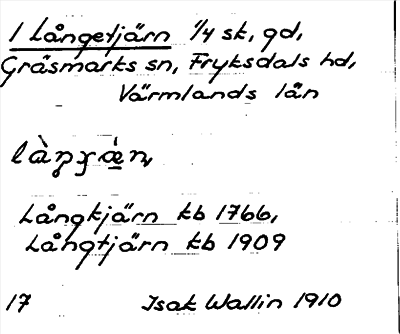 1 Långetjärn 1/4 sk, gd,
Gräsmarks sn, Fryksdals hd,
Värmlands län
Långkjärn kb 1766,
Långtjärn kb 1909
17 Isak Wallin 1910